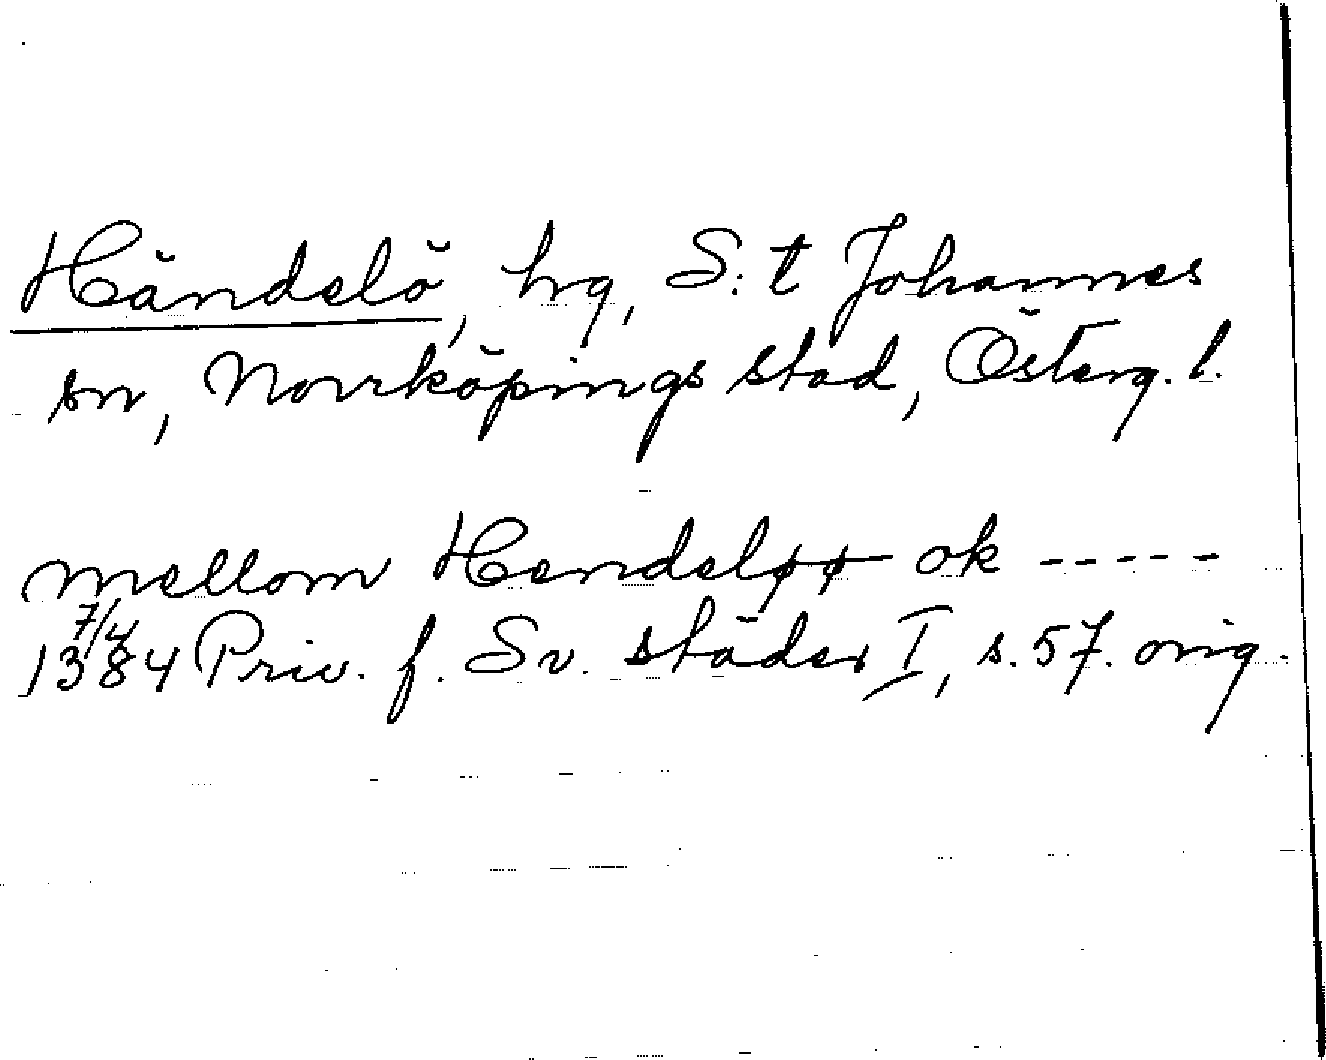 Händelö, hrg, S:t Johannes
sn, Norrköpings stad, Österg. l.
mellom Hendeløø ok -----
7/4
1384 Priv. f. Sv. städer I, s. 57. orig.